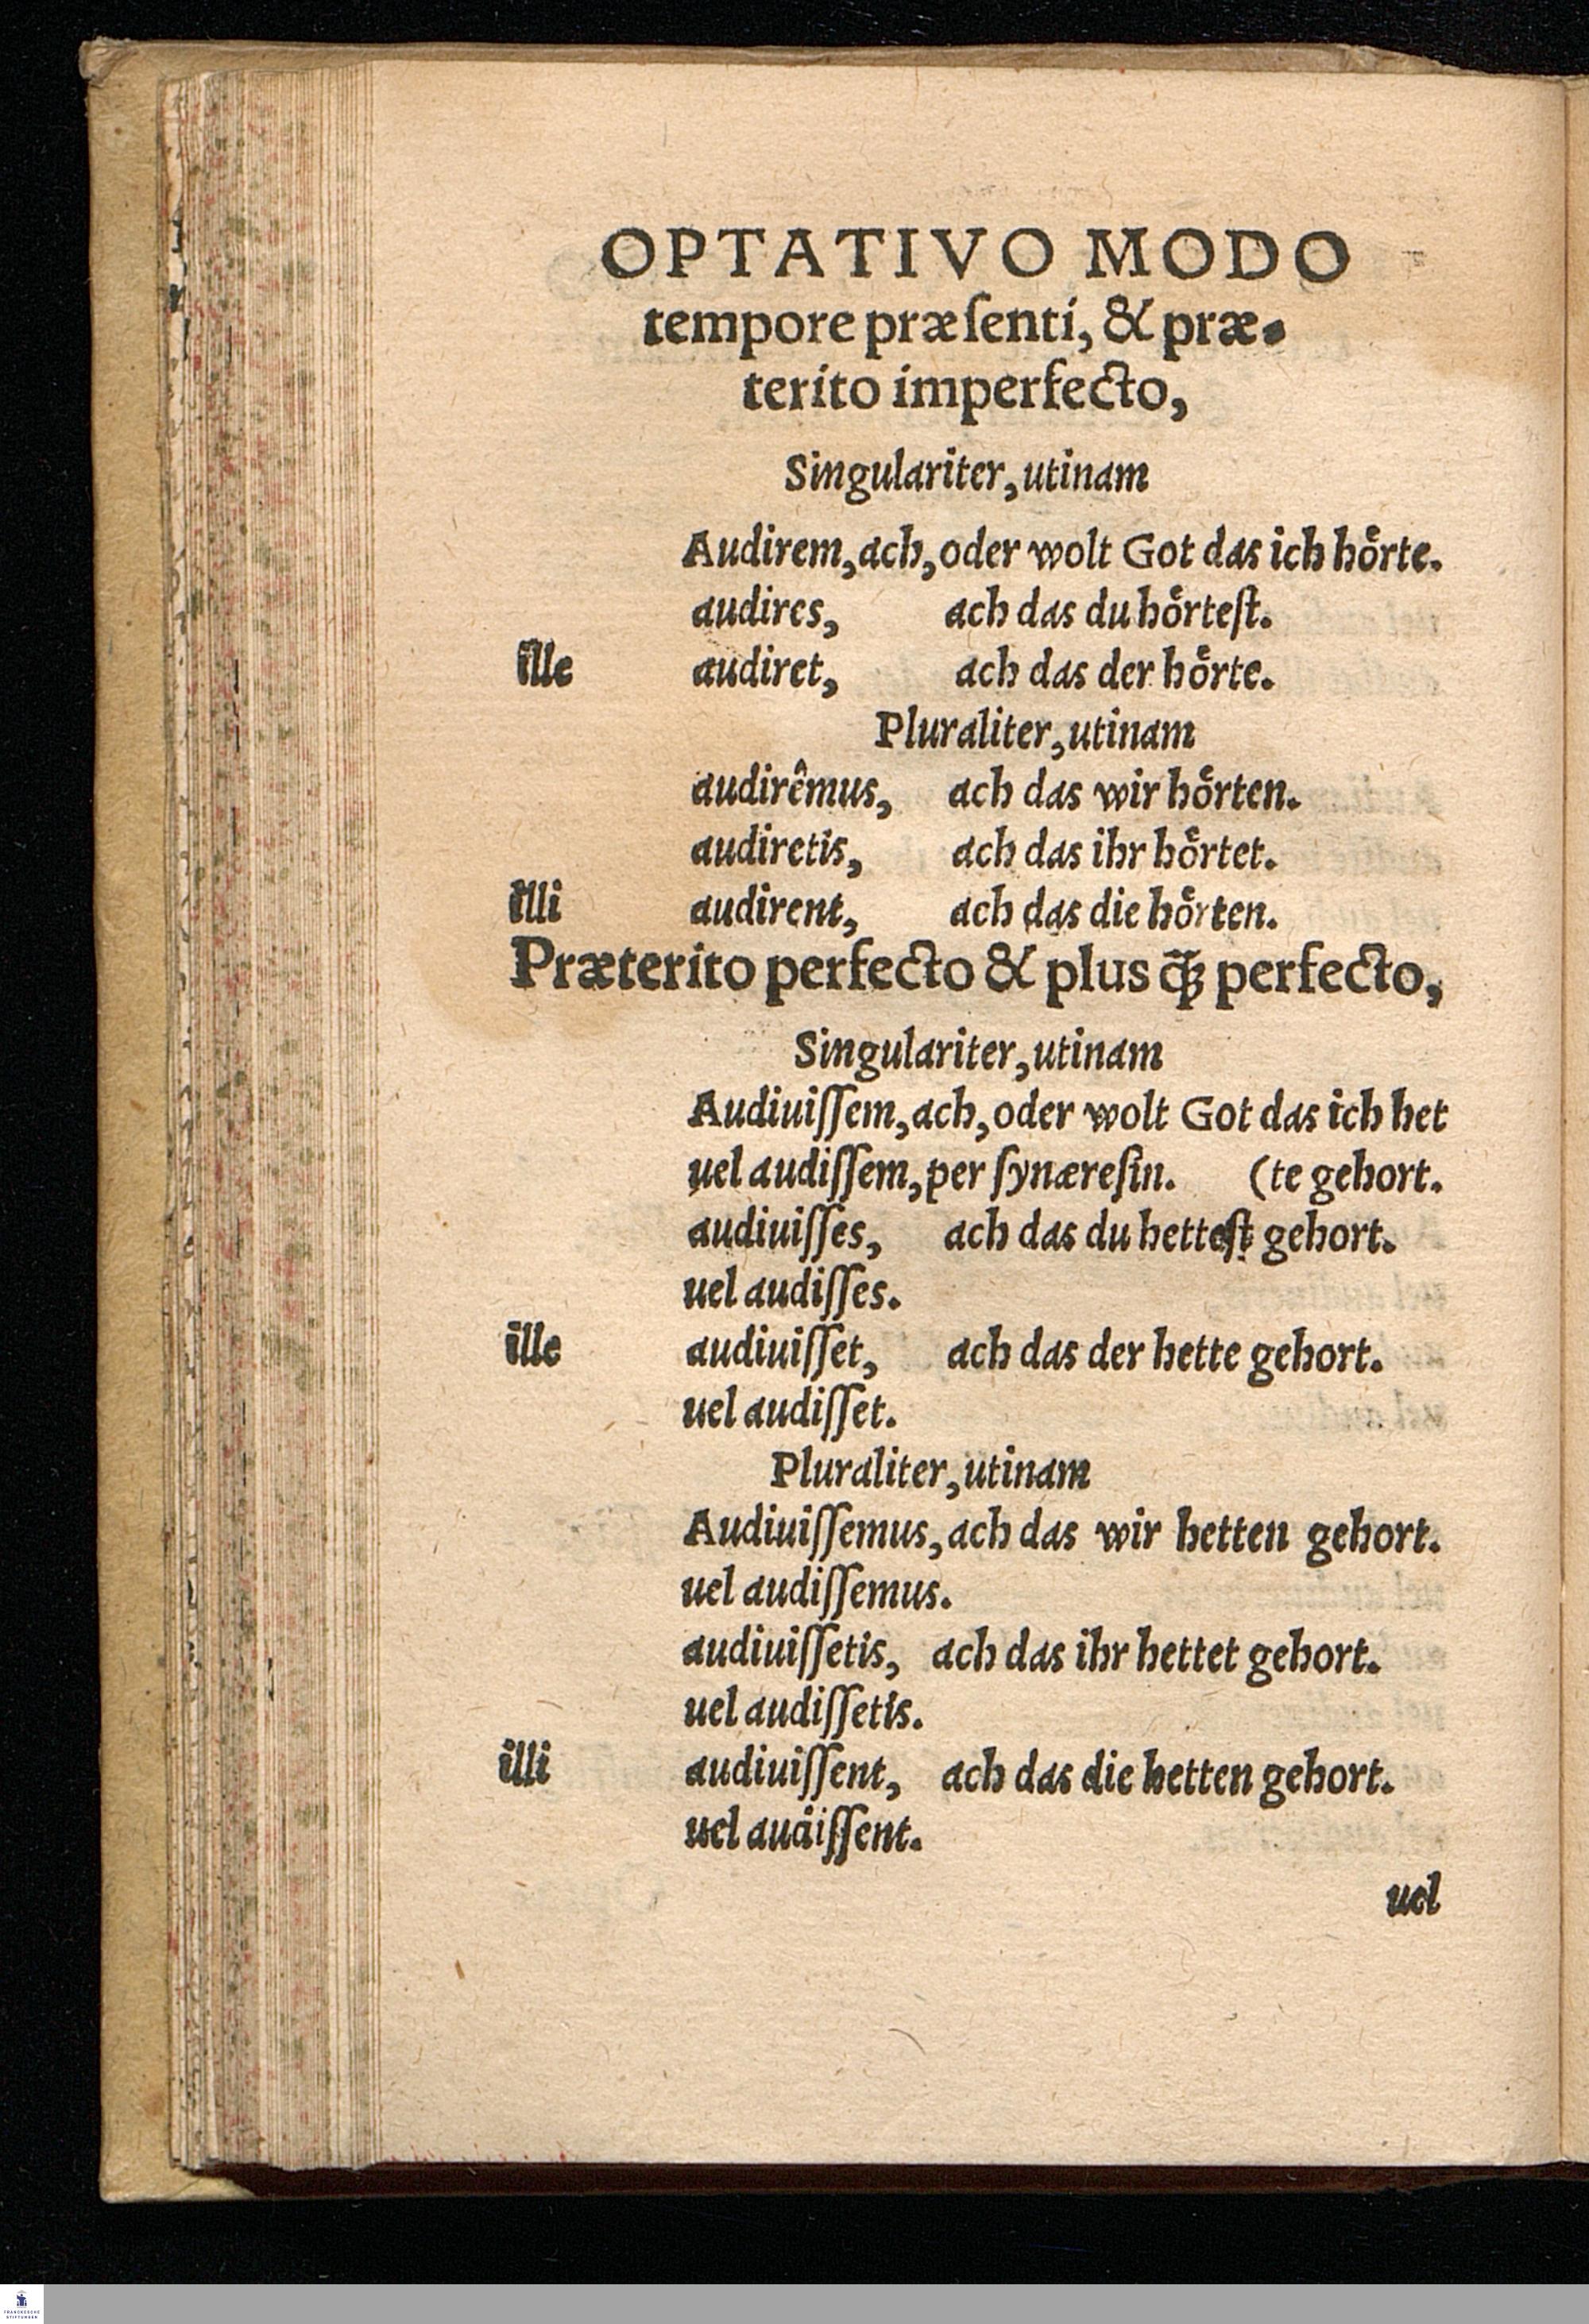 OPTATIVO MODO
tempore præſenti, & præ-
terito imperfecto,
Singulariter, utinam
Audirem, ach, oder wolt Got das ich hoͤrte.
audires, ach das du hoͤrteſt.
ille audiret, ach das der hoͤrte.
Pluraliter, utinam
audirêmus, ach das wir hoͤrten.
audiretis, ach das ihr hoͤrtet.
illi audirent, ach das die hoͤrten.
Præterito perfecto & plus q̃ꝫ perfecto,
Singulariter, utinam
Audiuiſſem, ach, oder wolt Got das ich het
uel audiſſem, per ſynæreſin. (te gehort.
audiuiſſes, ach das du hetteſt gehort.
uel audiſſes.
ille audiuiſſet, ach das der hette gehort.
uel audiſſet.
Pluraliter, utinam
Audiuiſſemus, ach das wir hetten gehort.
uel audiſſemus.
audiuiſſetis, ach das ihr hettet gehort.
uel audiſſetis.
illi audiuiſſent, ach das die hetten gehort.
uel audiſſent.
uel
FRANCKESCHE
STIFTUNGEN